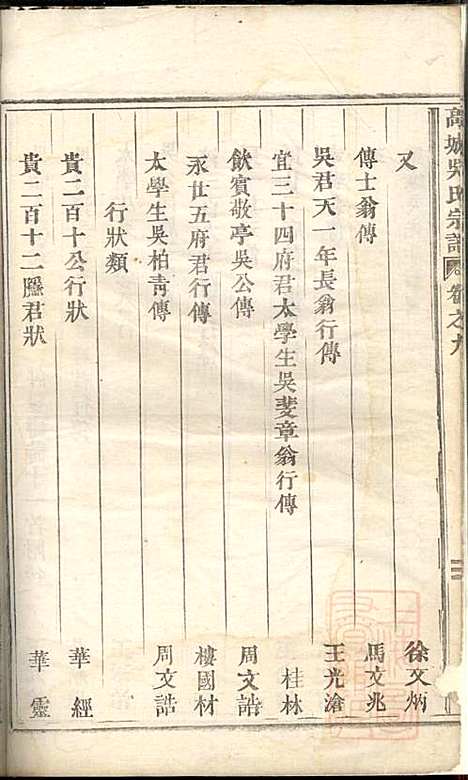 高城吳氏宗譜 卷之九 二
又 徐文炳
傳士翁傳 馬文兆
吳君天一年長翁行傳 王光滄
宜三十四府君太學生吳斐章翁行傳 桂林
飲賓敬亭吳公傳 周文誥
永世五府君行傳 樓國材
太學生吳柏靑傳 周文誥
行狀類
貴二百十公行狀 華經
貴二百十二𨼆君狀 華靈